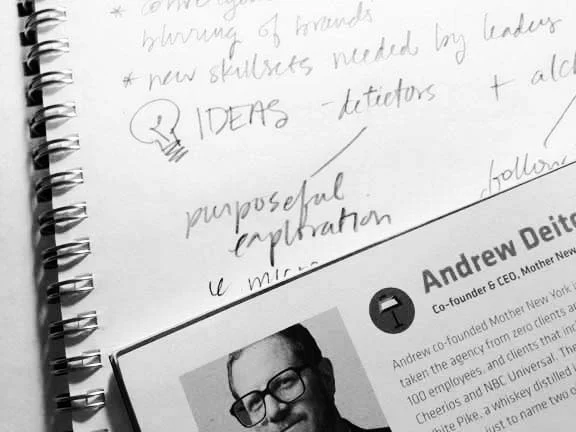 blurring of brands
* new skillsets needed by leaders
IDEAS - detectors + alc
purposeful
exploration
follow
Andrew Deito
Co-founder & CEO, Mother New
Andrew co-founded Mother New York i
taken the agency from zero clients a
100 employees, and clients that in
Cheerios and NBC Universal. The
White Pike, a whiskey distilled
just to name two o